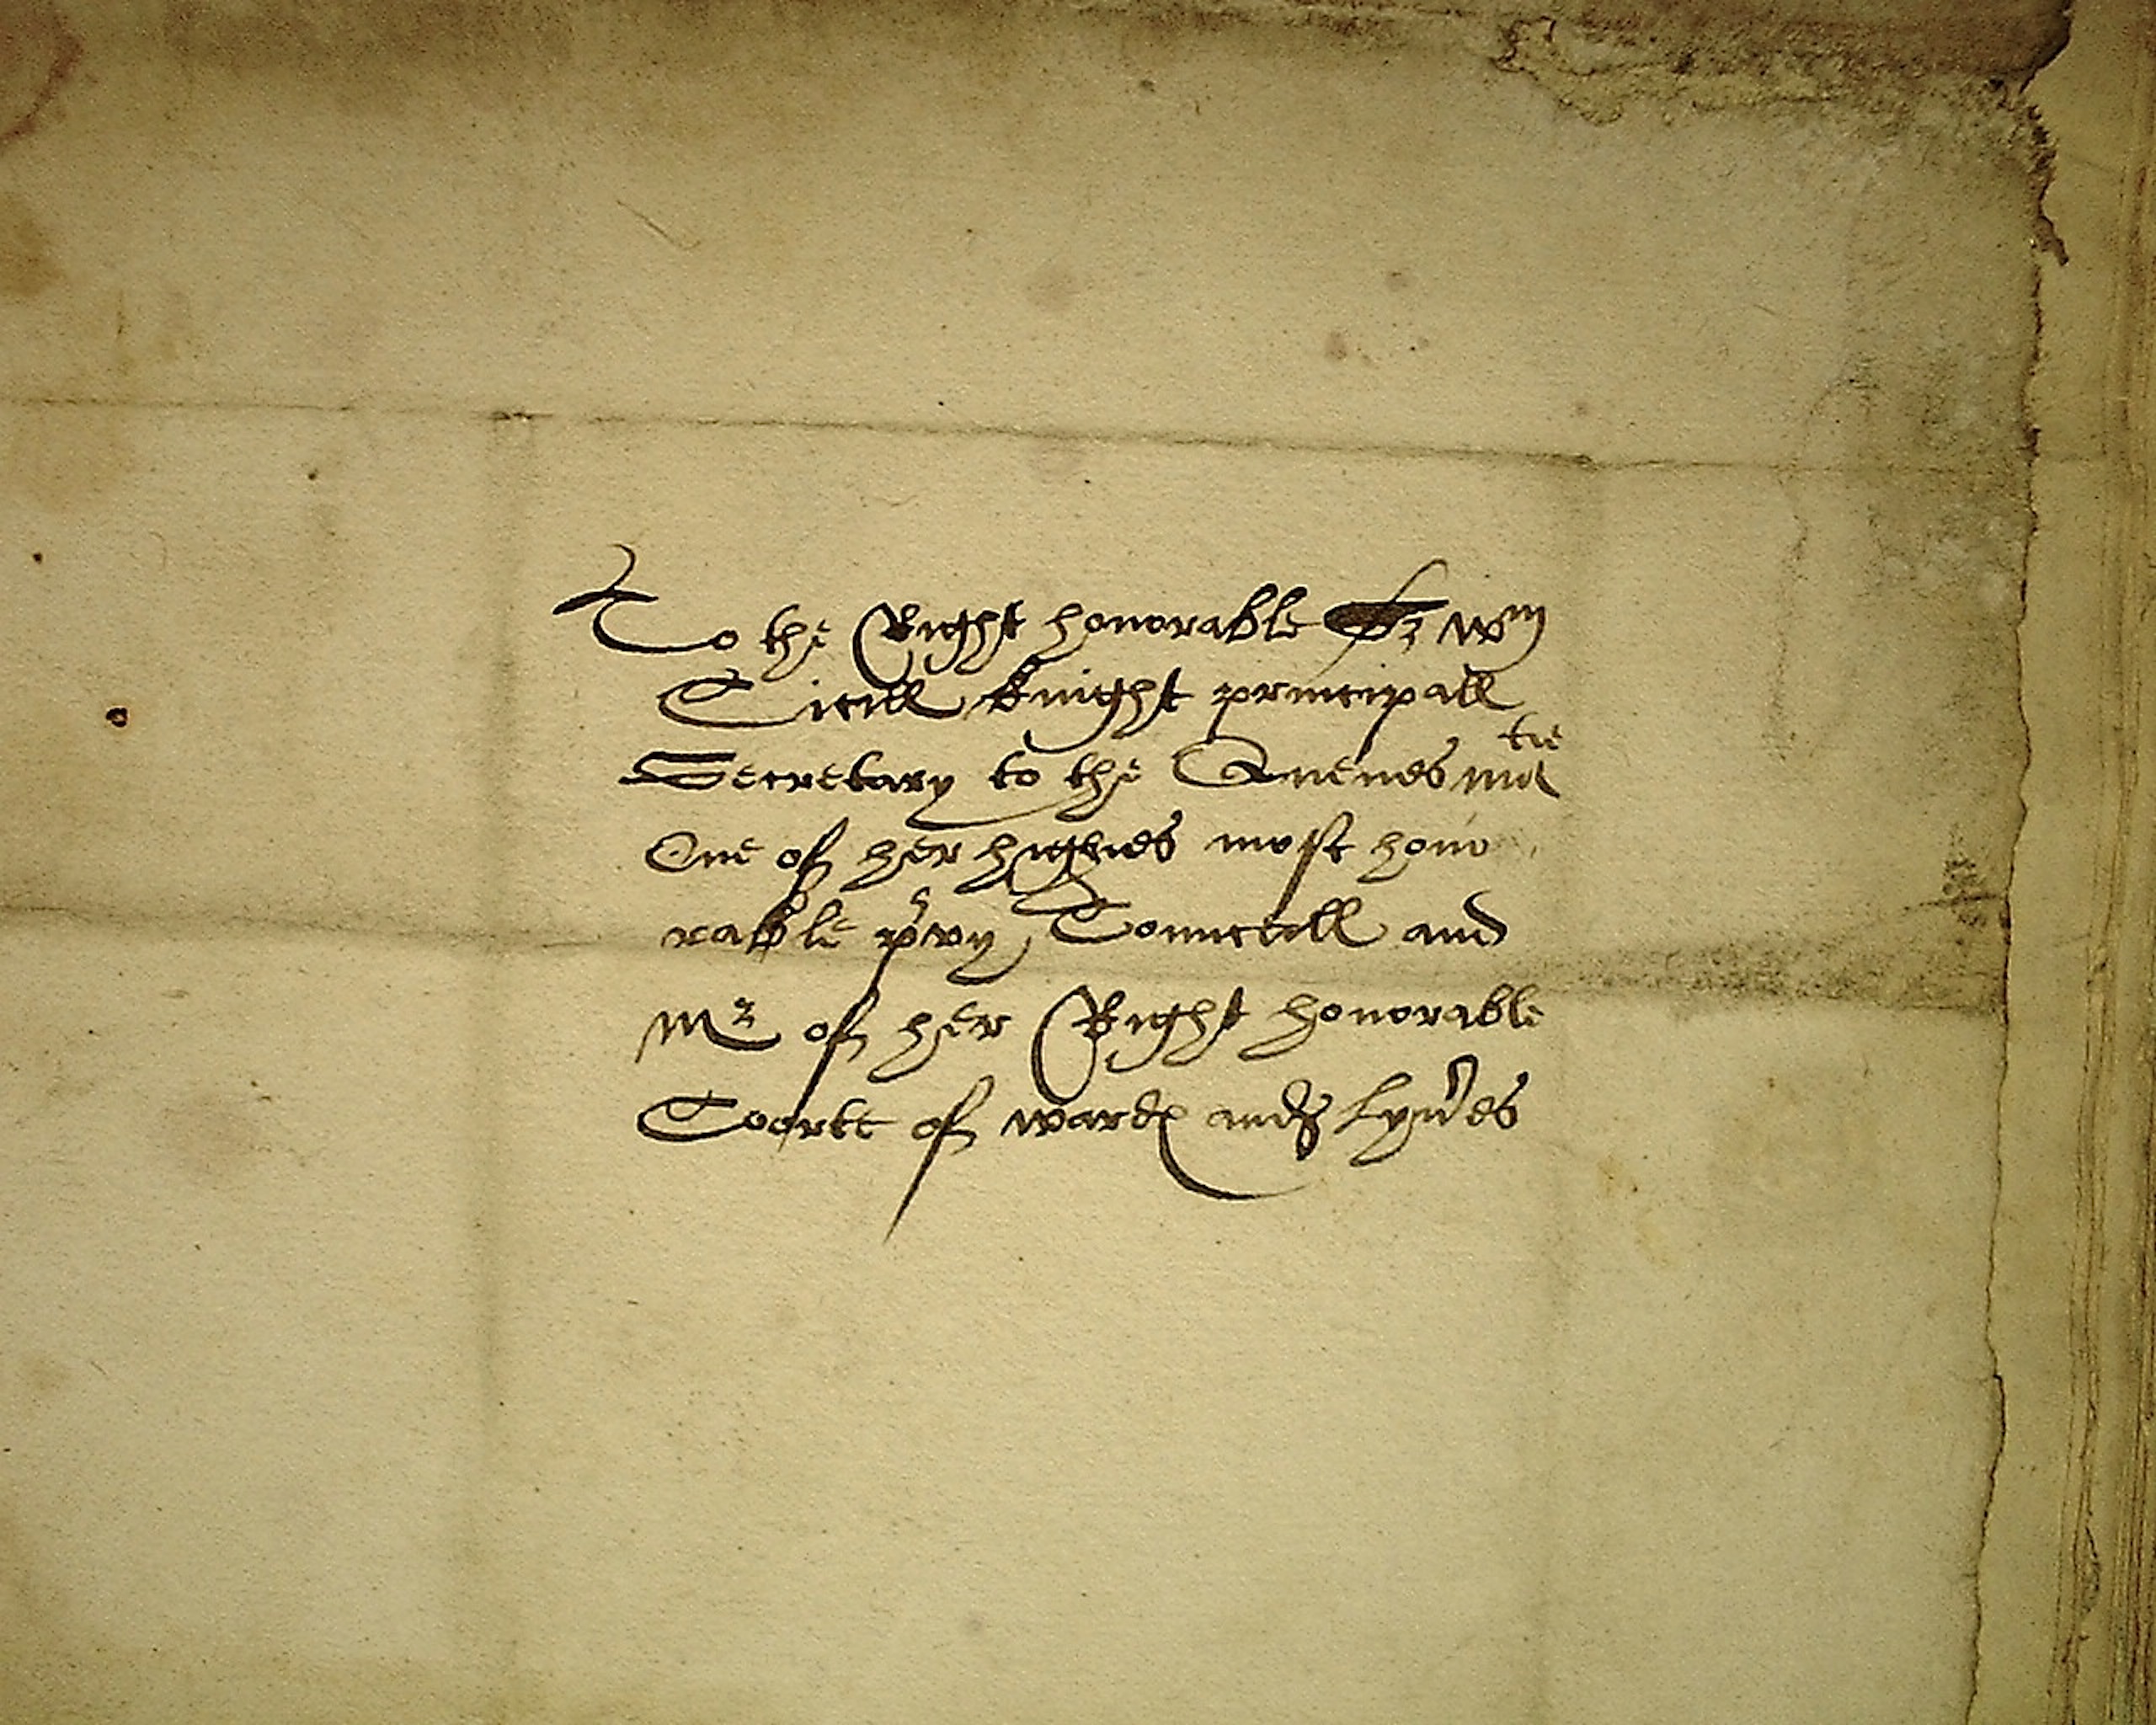 To the Right honorable Sr Wm
Cicill knight principall
Secretary to the Quenes matie
One of her highnes most hono
rable prvy Counceill and
Mr of her Right honorable
Coorte of wardes and lyveres